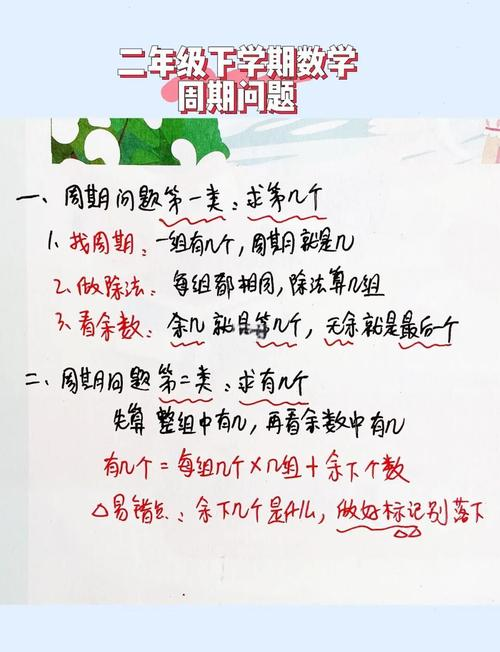 二年级下学期数学
周期问题
一、周期问题第一类：求第几个
1.找周期：一组有几个，周期就是几
2.做除法：每组都相同，除法算几组
3.看余数：余几就是第几个，无余就是最后一个
二、周期问题第二类：求有几个
先算整组中有几，再看余数中有几
有几个=每组几个×几组+余下个数
△易错点：余下几个是A/L，做好标记别落下